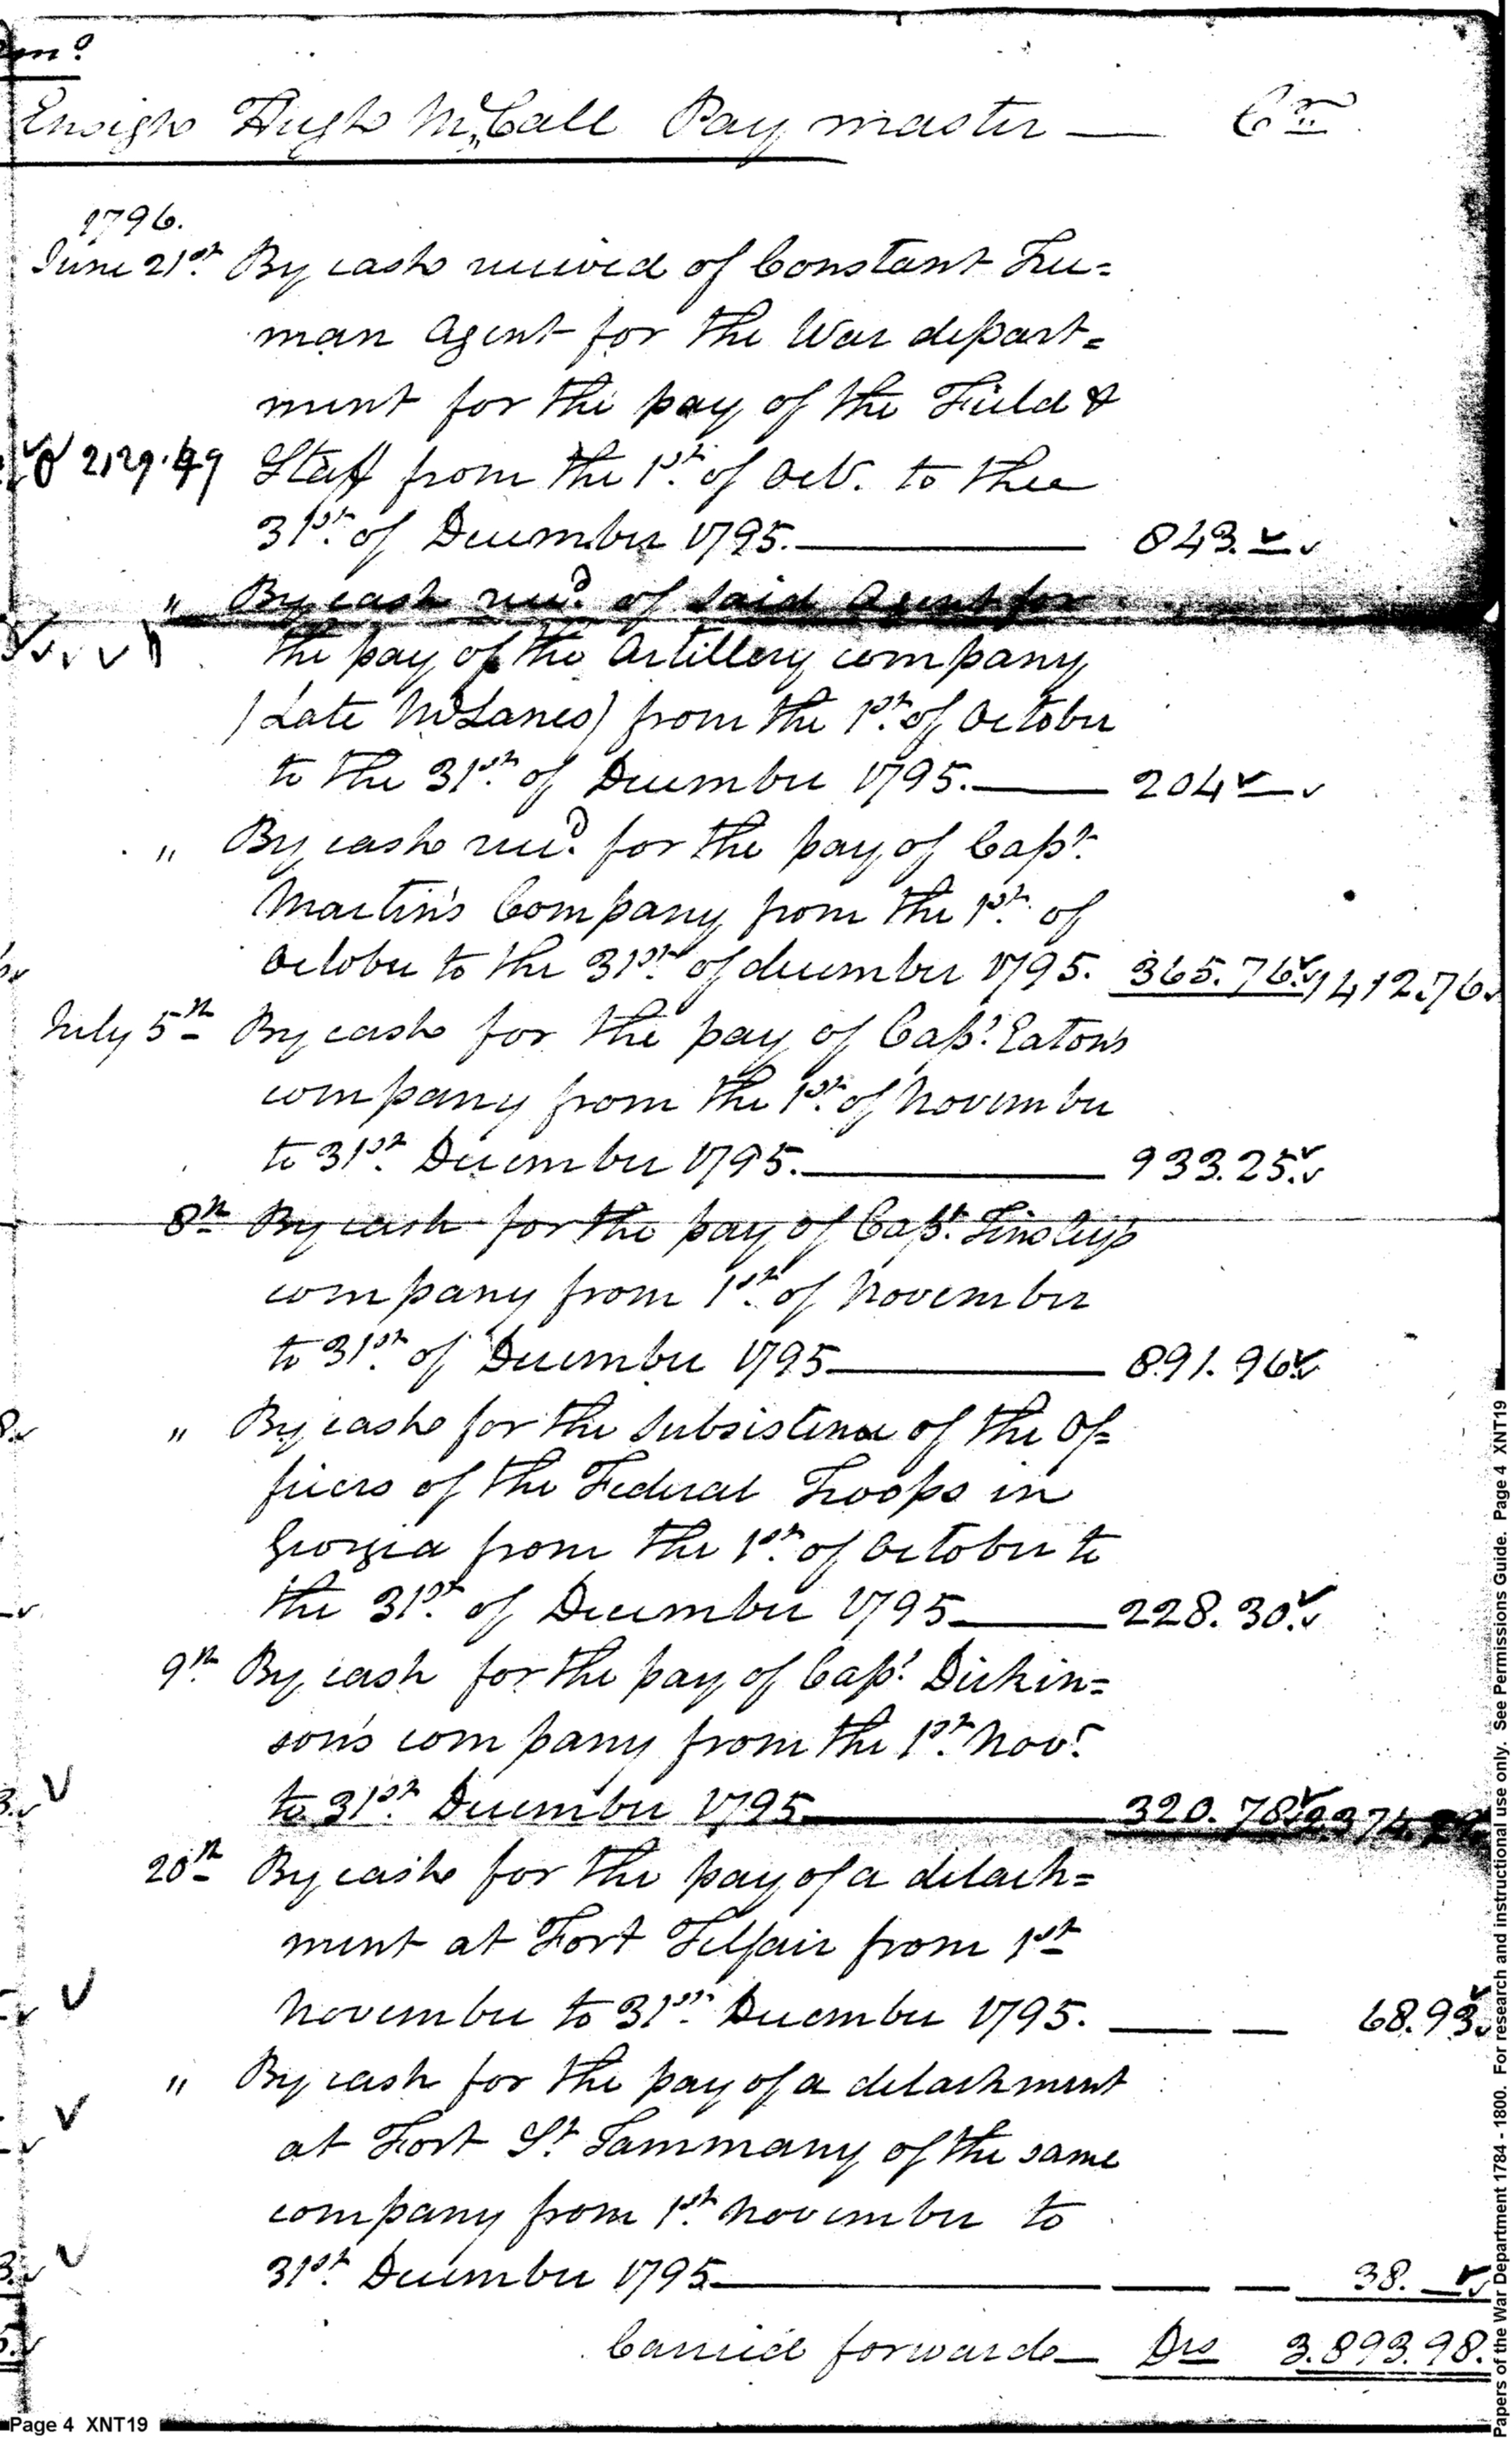 Ensign Hugh McCall Pay master — Cr.
1796.
June 21st. By cash received of Constant Free=
man Agent for the War depart=
ment for the pay of the Field &
2129.49 Staff from the 1st. of Oct. to thee
31st. of December 1795. 843. —
" By cash recd. of said Agent for
the pay of the Artillery company
(Late McLanes) from the 1st. of October
to the 31st. of December 1795. 204 —
" By cash recd. for the pay of Capt.
Martin's Company from the 1st. of
October to the 31st. of december 1795. 365.76. 1412.76
July 5th By cash for the pay of Capt. Eaton's
company from the 1st. of November
to 31st. December 1795. 933.25.
8th By cash for the pay of Capt. Tinsley's
company from 1st. of November
to 31st. of December 1795 891.96
" By cash for the subsistence of the Of=
ficers of the Federal Troops in
Georgia from the 1st. of October to
the 31st. of December 1795 228.30.
9th. By cash for the pay of Capt. Dickin=
son's company from the 1st. Novr.
to 31st. December 1795 320.78 2374.29
20th By cash for the pay of a detach=
ment at Fort Telfair from 1st
November to 31st. December 1795. — — 68.93
" By cash for the pay of a detachment
at Fort St. Tammany of the same
company from 1st. November to
31st. December 1795 — — 38. —
Carried forward Drs 3.893.98.
Page 4 XNT19
Papers of the War Department 1784 - 1800. For research and instructional use only. See Permissions Guide. Page 4 XNT19